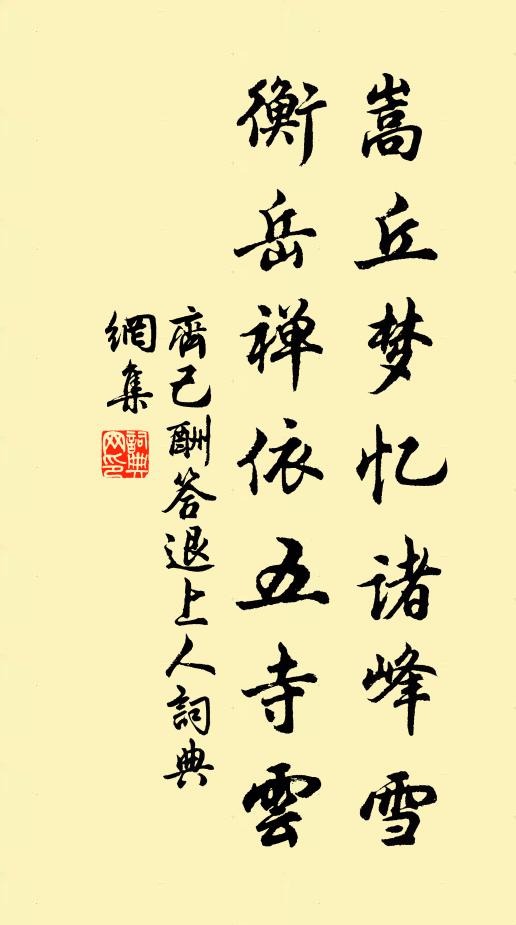 嵩丘梦忆诸峰雪
衡岳禅依五寺雲
齊己酬答退上人詞典
網集
詞典
网